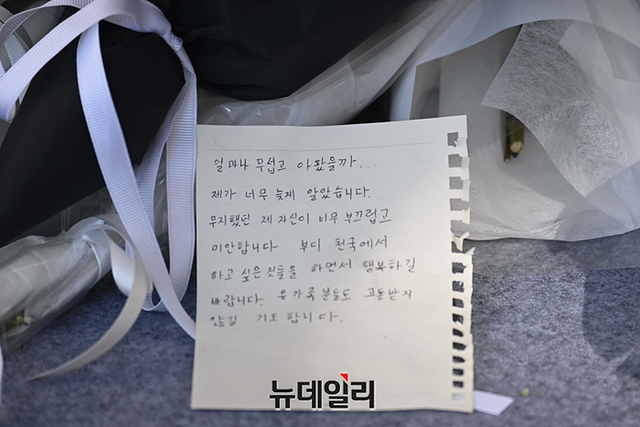 얼마나 무섭고 아팠을까...
제가 너무 늦게 알았습니다.
무지했던 제 자신이 너무 부끄럽고
미안합니다 부디 천국에서
하고 싶은것들을 하면서 행복하길
바랍니다. 유가족분들도 고통받지
않길 기도합니다.
뉴데일리